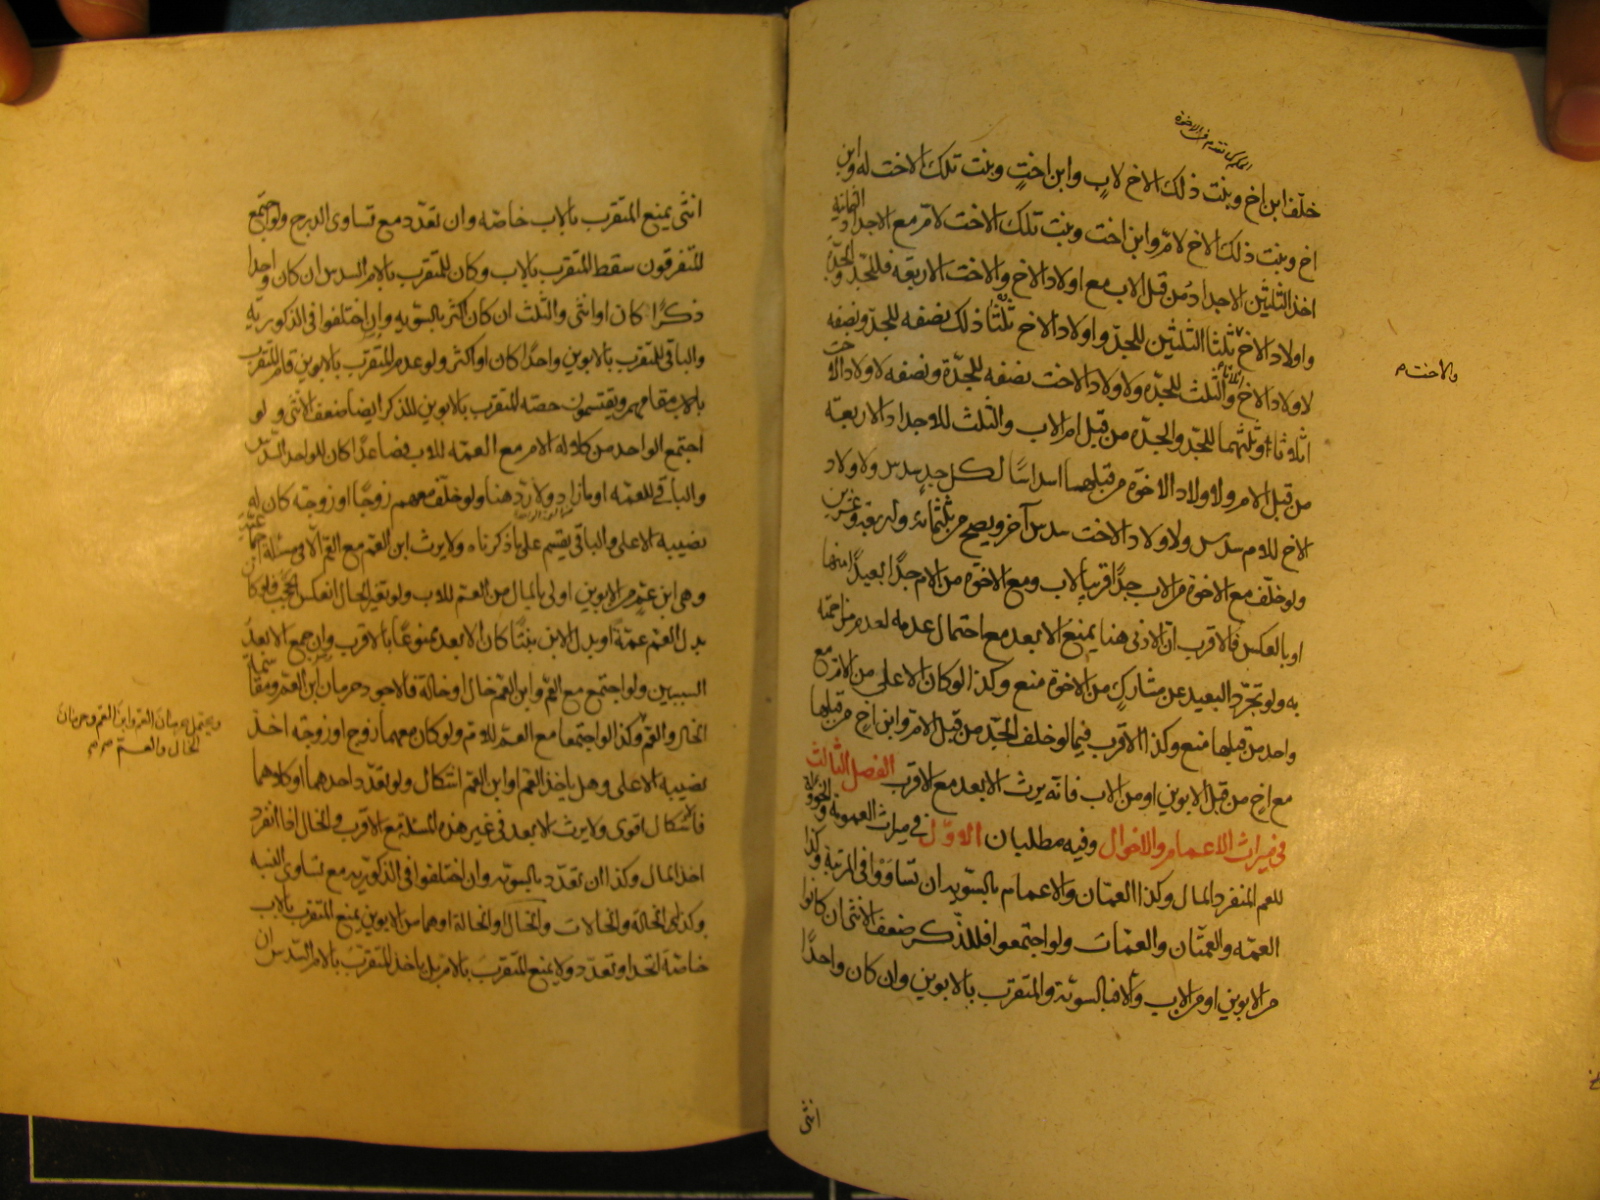 خلّف ابن اخ وبنت ذلك الاخ لاب وابن اخت وبنت تلك الاخت له وابن
اخ وبنت ذلك الاخ لامّ وابن اخت وبنت تلك الاخت لامّ مع الاجداد الثمانية
اخذ الثلثين الاجداد من قبل الاب مع اولاد الاخ والاخت الاربعة فللجدّ والجدّة
واولاد الاخ ثلثا الثلثين للجدّ واولاد الاخ ثلثا ذلك نصفه للجدّ ونصفه
لاولاد الاخ اثلاثا والثلث للجدّة ولاولاد الاخت نصفه للجدّة ونصفه لاولاد الاخت
اثلاثا وثلثهما للجدّ والجدّة من قبل ام الاب والثلث للاجداد الاربعة
من قبل الام ولاولاد الاخوة من قبلها اسداسًا لكل جد سدس ولاولاد
الاخ للام سدس ولاولاد الاخت سدس آخر ويصح من ثلثمائة واربعة وعشرين
ولو خلّف مع الاخوة من الاب جدًّا قريبًا لاب ومع الاخوة من الام جدًّا بعيدًا منها
او بالعكس فالاقرب ان الادنى هنا يمنع الابعد مع احتمال عدمه لعدم مزاحمته
به ولو تجرّد البعيد عن مشارك من الاخوة منع وكذا لو كان الاعلى من الام مع
واحد من قبلها منع وكذا الاقرب فيما لو خلف الجدّ من قبل الام وابن اخ من قبلها
مع اخ من قبل الابوين او من الاب فانه يرث الابعد مع الاقرب الفصل الثالث
في ميراث الاعمام والاخوال وفيه مطلبان الاوّل في ميراث العمومة والخؤولة
للعم المنفرد المال وكذا العمان والاعمام بالسوية ان تساووا في المرتبة وكذا
العمة والعمتان والعمات ولو اجتمعوا فللذكر ضعف الانثى ان كانوا
من الابوين او من الاب والا فبالسوية والمتقرب بالابوين وان كان واحدًا
انثى
والاخت م
انثى يمنع المتقرب بالاب خاصّة وان تعدّد مع تساوى الدرج ولو اجتمع
المتفرقون سقط المتقرب بالاب وكان للمتقرب بالام السدس ان كان واحدا
ذكرًا كان او انثى والثلث ان كان اكثر بالسوية وان اختلفوا في الذكورية
والباقي للمتقرب بالابوين واحدًا كان او اكثر ولو عدم المتقرب بالابوين قام المتقرب
بالاب مقامهم ويقتسمون حصة المتقرب بالابوين للذكر ايضا ضعف الانثى ولو
اجتمع الواحد من كلالة الام مع العمة للاب فصاعدًا كان للواحد السدس
والباقي للعمة او ما زاد ولا رد هنا ولو خلّف معهم زوجًا او زوجة كان له
نصيبه الاعلى والباقي يقسم على ما ذكرناه ولا يرث ابن العم مع العم الا في مسئلة اجماعية
وهي ابن عم من الابوين اولى بالمال من العم للاب ولو تغير الحال انعكس الحجب فلو كان
بدل العم عمة او بدل الابن بنتًا كان الابعد ممنوعًا بالاقرب وان جمع الابعد
السببين ولو اجتمع مع العم وابن العم خال او خالة فالاجود حرمان ابن العم ومقاسمة
الخال والعم وكذا لو اجتمعا مع العم للام ولو كان معهما زوج او زوجة اخذ
نصيبه الاعلى وهل ياخذ العم او ابن العم اشكال ولو تعدّد احدهما او كلاهما
فالاشكال اقوى ولا يرث الابعد في غير هذه المسئلة مع الاقرب والخال اذا انفرد
اخذ المال وكذا ان تعدّد بالسويّة وان اختلفوا في الذكوريّة مع تساوى النسبة
وكذا في الخالة والخالات والخال والخالة او هما من الابوين يمنع المتقرب بالاب
خاصّة اتحد او تعدّد ولا يمنع المتقرب بالام بل ياخذ المتقرب بالام السدس ان
ويحتمل حرمان العم وابن العم وحرمان
الخال والعم